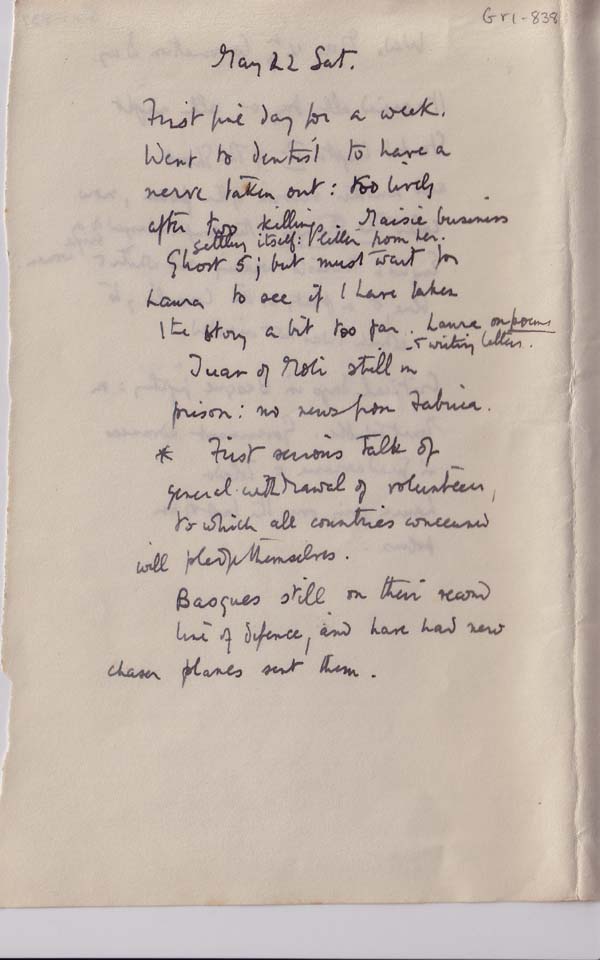 Gr1-838
May 22 Sat.
First fine day for a week.
Went to dentist to have a
nerve taken out: too lively
after two killings. Maisie business
settling itself: letter from her.
Ghost 5; but must wait for
Laura to see if I have taken
the story a bit too far. Laura on poems
+ writing letters.
Juan of Moli still in
prison: no news from Fabrica.
* First serious talk of
general withdrawal of volunteers,
to which all countries concerned
will pledge themselves.
Basques still on their second
line of defence, and have had new
chaser planes sent them.